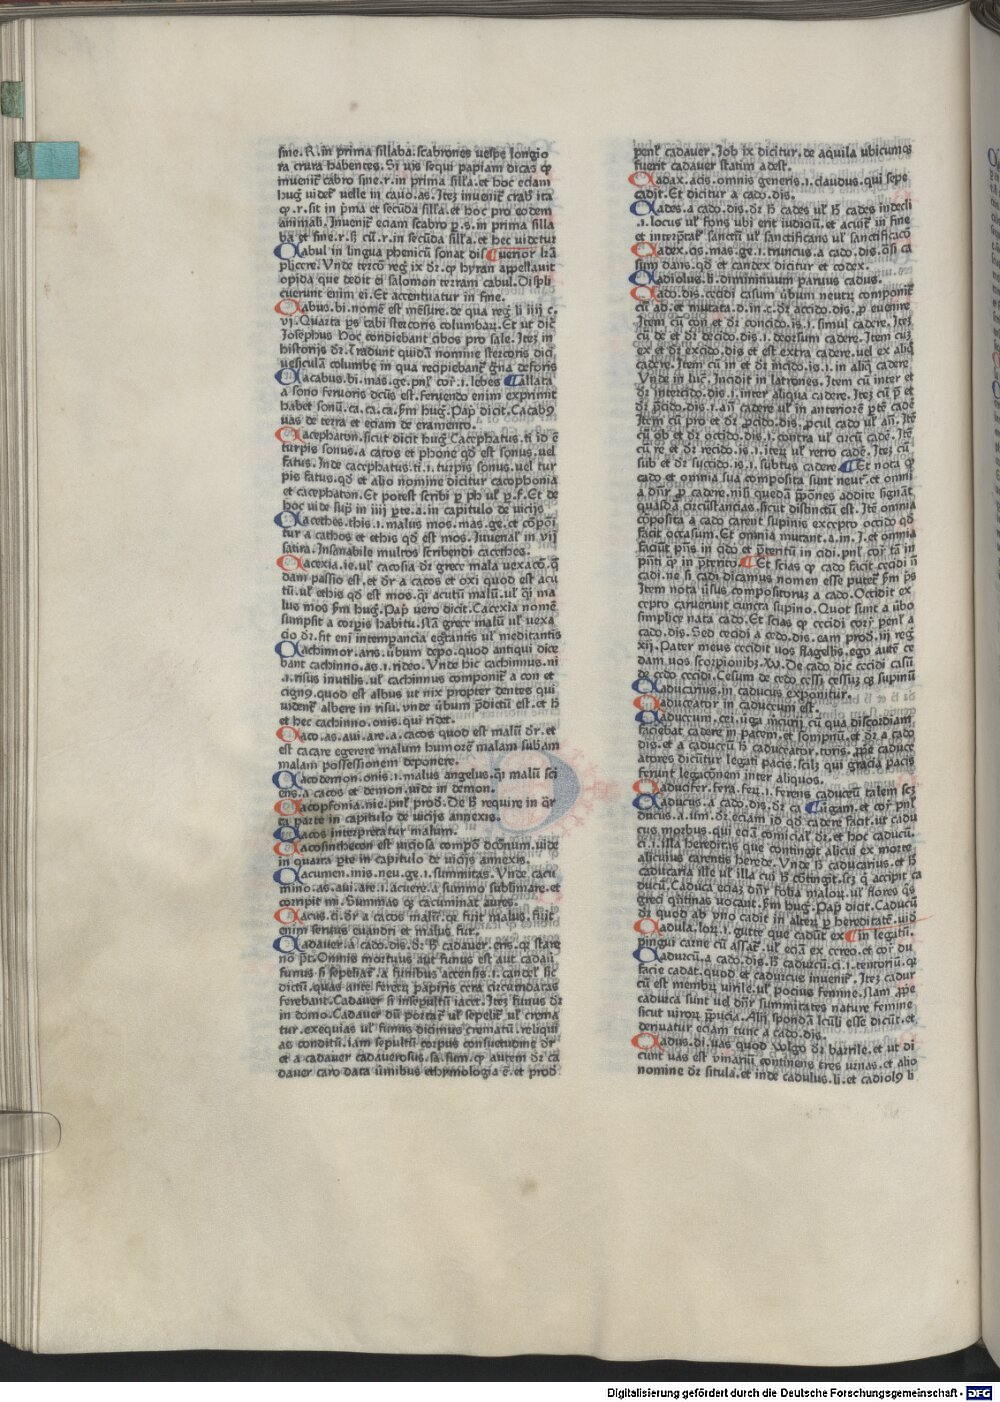 sine.R.in prima sillaba.scabrones vespe longio
ra crura habentes.Si uis sequi papiam dicas ꝙ
invenit᷑ cabro sine.r.in prima silla.et hoc eciam
hug᷑ videt᷑ velle in cavo.as.Itez invenit᷑ crab᷑ ita
ꝙ.r.sit in p̄ma et secūda silla.et hoc pro eodem
animali.Invenit᷑ eciam scabro p̲.s.in prima silla
ba et sine.r.ꝫ cū.r.in secūda silla.et hec videtur
Cabul in lingua phenicū sonat dis ¶verior lr̄a
plicere.Vnde tercō reg᷑ ix dr̄.ꝙ hyran appellavit
opida que dedit ei salomon terram cabul.Displi
cuerunt enim ei.Et accentuatur in fine.
Cabus.bi.nomē est mesure.de qua reg᷑ li iiij c.
vj.Quarta p̄s cabi stercoris columbaꝝ.Et ut dic̄
Josephus hoc condiebant cibos pro sale.Itez in
historijs dr̄.Tradunt quidā nomine stercoris dici
vesiculā columbe in qua recipiebant᷑ g̃na deforis
Cacabus.bi.mas.ge.pnl᷑ cor᷑.i.lebes ¶allata
a sono fervoris dc̄us est.fervendo enim exprimit
habet sonū.ca.ca.ca.ẜm hug᷑.Pap᷑ dicit.Cacabꝰ
vas de terra et eciam de eramento.
Cacephaton.sicut dicit hug᷑ Cacephatus.ti id ē
turpis sonus.a catos et phone qd̄ est sonus.vel
fatus.Inde cacephatus.ti.i.turpis sonus.vel tur
pis fatus.qd̄ et alio nomine dicitur cacophonia
et cacephaton.Et potest scribi p̲ ph ul᷑ p̲.f.Et de
hoc vide sup̄ in iiij p̲te.a.in capitulo de vicijs
Cacethes.this.i.malus mos.mas.ge.et cōpōi
tur a cathos et ethis qd̄ est mos.Juvenal᷑ in vij
satira.Insanabile multos scribendi cacethes.
Cacexia.ie.ul᷑ cacosia dr̄ grece mala vexacō.q̄
dam passio est.et dr̄ a cacos et oxi quod est acu
tū.ul᷑ ethis qd̄ est mos.q̄i acutū malū.ul᷑ q̄i ma
lus mos ẜm hug᷑.Pap᷑ vero dicit.Cacexia nomē
sumpsit a corpis habitu.Nā grece malū ul᷑ vexa
cio dr̄.fit eni intempancia egrantis ul᷑ meditantis
Cachinnor.aris.ūbum depo.quod antiqui dice
bant cachinno.as.i.rideo.Vnde hic cachinnus.ni
.i.risus inutilis.ul᷑ cachinnus componit᷑ a con et
cigno.quod est albus ut nix propter dentes qui
vident᷑ albere in risu.vnde ūbum p̄dictū est.et ꝫ
et hec cachinno.onis.qui ridet.
Caco.as.avi.are.a cacos quod est malū dr̄.et
est cacare egerere malum humorē malam sub̄am
malam possessionem deponere.
Cacodemon.onis.i.malus angelus.q̄i malū sci
ens.a cacos et demon.vide in demon.
Cacopfonia.nie.pnl᷑ prod᷑.De ꝫ require in q̄r
ta parte in capitulo de vicijs annexis.
Cacos interpretatur malum.
Cacosintheton est viciosa compō dcōnum.vide
in quarta p̲te in capitulo de vicijs annexis.
Cacumen.inis.neu.ge.i.summitas.Vnde cacu
mino.as.avi.are.i.acuere.a summo sublimare.et
corripit mi.Summas ꝙ cacuminat aures.
Cacus.ci.dr̄ a cacos malū.qꝛ fuit malus.fuit
enim servus euandri et malus fur.
Cadaver.a cado.dis.dr̄ ꝫ cadaver.eris.qꝛ stare
nō p̄t.Omnis mortuus aut funus est aut cadav᷑
funus si sepeliat᷑.a funibus accensis.i.candel᷑ sic
dictū.quas ante feretꝝ papiris cera circumdatas
ferebant.Cadaver si insepultū iacet.Itez funus dr̄
in domo.Cadaver dū portat᷑ ul᷑ sepelit᷑ ul᷑ crema
tur.exequias ul᷑ fumis dicimus crematū.reliqui
as conditū.iam sepultū corpus consuetudine dr̄
et a cadaver cadaverosus.sa.sum.ꝙ autem dr̄ ca
daver caro data ūmibus ethymologia ē.et prod᷑
penl᷑ cadaver.Job ix dicitur.de aquila ubicumqꝫ
fuerit cadaver statim adest.
Cadax.acis.omnis generis.i.claudus.qui sepe
cadit.Et dicitur a cado.dis.
Cades.a cado.dis.dr̄ ꝫ cades ul᷑ ꝫ cades indecli
.i.locus ul᷑ fons ubi erit iudiciū.et acuit᷑ in fine
et interp̄tat᷑ sanctū ul᷑ sanctificans ul᷑ sanctificacō
Cadex.cis.mas.ge.i.truncus.a cado.dis.q̄si ca
sum dans.qd̄ et candex dicitur et codex.
Cadiolus.li.diminitiuum parvus cadus.
Cado.dis.cecidi casum ūbum neutꝝ componit᷑
cū ad.et mutata.d.in.c.dr̄ accido.dis.p̲ evenire
Item cū con et dr̄ concido.is.i.simul cadere.Itez
cū de et dr̄ decido.dis.i.deorsum cadere.Item cuz
ex et dr̄ excido.dis et est extra cadere.vel ex aliq̄
cadere.Item cū in et dr̄ incido.is.i.in aliq̄ cadere
Vnde in luc᷑.Incidit in latrones.Item cū inter et
dr̄ intercido.dis.i.inter aliqua cadere.Itez cū p̄ et
dr̄ p̄cido.dis.i.an̄ cadere ul᷑ in anteriorē p̲tē cadē
Item cū pro et dr̄ ꝓcido.dis.ꝓcul cado ul᷑ an̄.Itē
cū ob et dr̄ occido.dis.i.contra ul᷑ circū cadē.Itē
cū re et dr̄ recido.is.i.iteꝝ ul᷑ retro cadē.Itez cū
sub et dr̄ succido.is.i.subtus cadere ¶Et nota ꝙ
cado et omnia sua composita sunt neut᷑.et omni
a dn̄r p̲ cadere.nisi quedā p̄pōnes addite signāt
quasdā circūstancias.sicut distinctū est.Itē omnia
cōposita a cado carent supinis excepto occido qd̄
facit occasum.Et omnia mutant.a.in.i.et omnia
faciūt p̄ns in cido et p̄teritū in cidi.pnl᷑ cor᷑ tā in
pn̄ti qꝫ in p̄terito.¶Et scias ꝙ cado facit cecidi ñ
cadi.ne si cadi dicamus nomen esse putet᷑ ẜm p̄s
Item nota ūsus compositoruz a cado.Occidit ex
cepto caruerunt cuncta supino.Quot sunt a ūbo
simplice nata cado.Et scias ꝙ cecidi corꝝ penl᷑ a
cado.dis.Sed cecidi a cedo.dis.eam prod᷑.iij reg᷑
xij.Pater meus cecidit vos flagellis.ego autē ce
dam vos scorpionibꝫ.Vꝰ.De cado dic cecidi casū
de cedo cecidi.Cesum de cedo cessi cessuz qꝫ supinū
Caducarius.in caducus exponitur.
Caduceator in caduceum est.
Caduceum.cei.v̄ga mcurij cū qua discordiam
faciebat cadere in pacem.et sompnū.et dr̄ a cado
dis.et a caduceū ꝫ caduceator.toris.ꝓpe caduce
atores dicūtur legati pacis.scilꝫ qui gracia pacis
ferunt legacōnem inter aliquos.
Caducifer.fera.ferꝝ.i.ferens caduceū talem scꝫ
Caducus.a cado.dis.dr̄ ca ¶v̄gam.et cor᷑ pnl᷑
ducus.a.um.dr̄ eciam id qd̄ cadere facit.ut cadu
cus morbus.qui eciā comicial᷑ dr̄.et hoc caducū.
ci.i.illa hereditas que contingit alicui ex morte
alicuius carentis herede.Vnde ꝫ caducarius.et ꝫ
caducaria ille ul᷑ illa cui ꝫ cōtingit.scꝫ q̄ accipit ca
ducū.Caduca eciaz dn̄r folia maloꝝ.ul᷑ flores q̄s
greci q̄ntinas vocant.ẜm hug᷑.Pap᷑ dicit.Caducū
dr̄ quod ab vno cadit in alteꝝ p̲ hereditatē.vid᷑
Cadula.loꝝ.i.gutte que cadūt ex ¶in legatū.
pingui carne cū assat᷑.ul᷑ eciā ex cereo.et cor᷑ du
Cadurcū.a cado.dis.dr̄ ꝫ cadurcū.ci.i.tentoriū.qꝛ
facie cadat.quod et cadurcus invenit᷑.Itez cadur
cū est membꝝ virile.ul᷑ pocius femine.Nam ꝓp̄e
cadurca sunt vel dn̄r summitates nature femine
sicut viroꝝ p̄pucia.Alij spondā lectuli esse dicūt.et
derivatur eciam tunc a cado.dis.
Cadus.di.vas quod volgo dr̄ barrile.et ut di
cunt vas est vinariū continens tres urnas.et alio
nomine dr̄ situla.et inde cadulus.li.et cadiolꝰ li
Digitalisierung gefördert durch die Deutsche Forschungsgemeinschaft - DFG